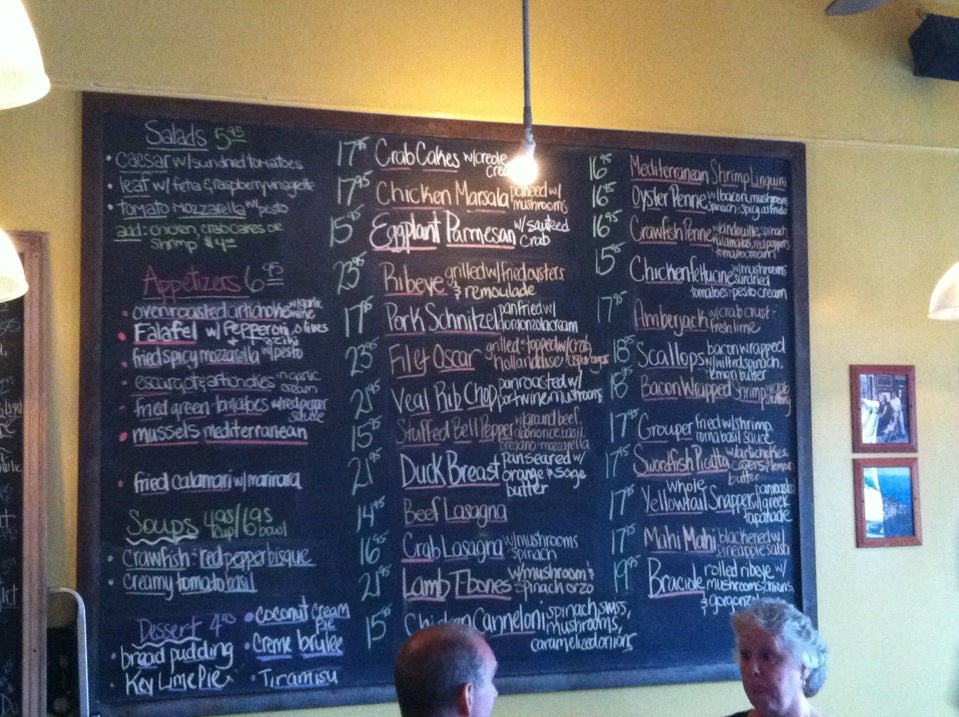 Salads 5.95
• Caesar w/ sundried tomatoes
• Leaf w/ fetta & raspberry vinaigrette
• Tomato Mozzarella w/ pesto
add: chicken, crab cakes or
shrimp $4.95
Appetizers 6.95
• oven roasted artichoke w/ garlic wine
• Falafel w/ Pepperoni, olives &
• fried spicy mozzarella w/ pesto
• escargot & artichokes in garlic cream
• fried green tomatoes w/ red pepper sauce
• mussels mediterranean
• fried calamari w/ marinara
Soups 4.95 cup/ 6.95 bowl
• Crawfish: red pepper bisque
• creamy tomato basil
Dessert 4.95
• bread pudding
• Key Lime Pie
• Coconut Cream Pie
• Creme brulee
• Tiramisu
17.95 Crab Cakes w/ creole
17.95 Chicken Marsala paneed w/
mushrooms
15.95 Eggplant Parmesan w/ sauteed
crab
23.95 Ribeye grilled w/ fried oysters
& remoulade
17.95 Pork Schnitzel panfried w/
gorgonzola cream
23.95 Filet Oscar grilled - topped w/ crab,
hollandaise asparagus
21.95 Veal Rib Chop pan roasted w/
port wine mushrooms
15.95 Stuffed Bell Pepper w/ ground beef,
rice basil
oregano - mozzarella
21.95 Duck Breast Pan seared w/
orange & sage
butter
14.95 Beef Lasagna
16.95 Crab Lasagna w/ mushrooms
spinach
21.95 Lamb T-bones w/ mushroom &
spinach orzo
15.95 Chicken Canneloni spinach, swiss,
mushrooms,
caramelized onions
16.95 Mediterranean Shrimp Linguini
16.95 Oyster Penne w/ bacon, mushroom
spinach - spicy alfredo
16.95 Crawfish Penne w/ andouille, spinach
kalamatas, red peppers
tomato cream
15.95 Chicken Fettucine w/ mushrooms
sundried
tomatoes - pesto cream
17.95 Amberjack w/ crab crust -
fresh lime
18.95 Scallops bacon wrapped
w/ wilted spinach,
lemon butter
18.95 Bacon Wrapped Shrimp
17.95 Grouper fried w/ shrimp,
roma basil sauce
17.95 Swordfish Picatta w/ artichokes
capers & lemon
butter
17.95 whole
Yellowtail Snapper pan roasted
w/ greek
tapanade
17.95 Mahi Mahi blackened w/
pineapple salsa
19.95 Braciole rolled ribeye w/
mushrooms, onions
& gorgonzola